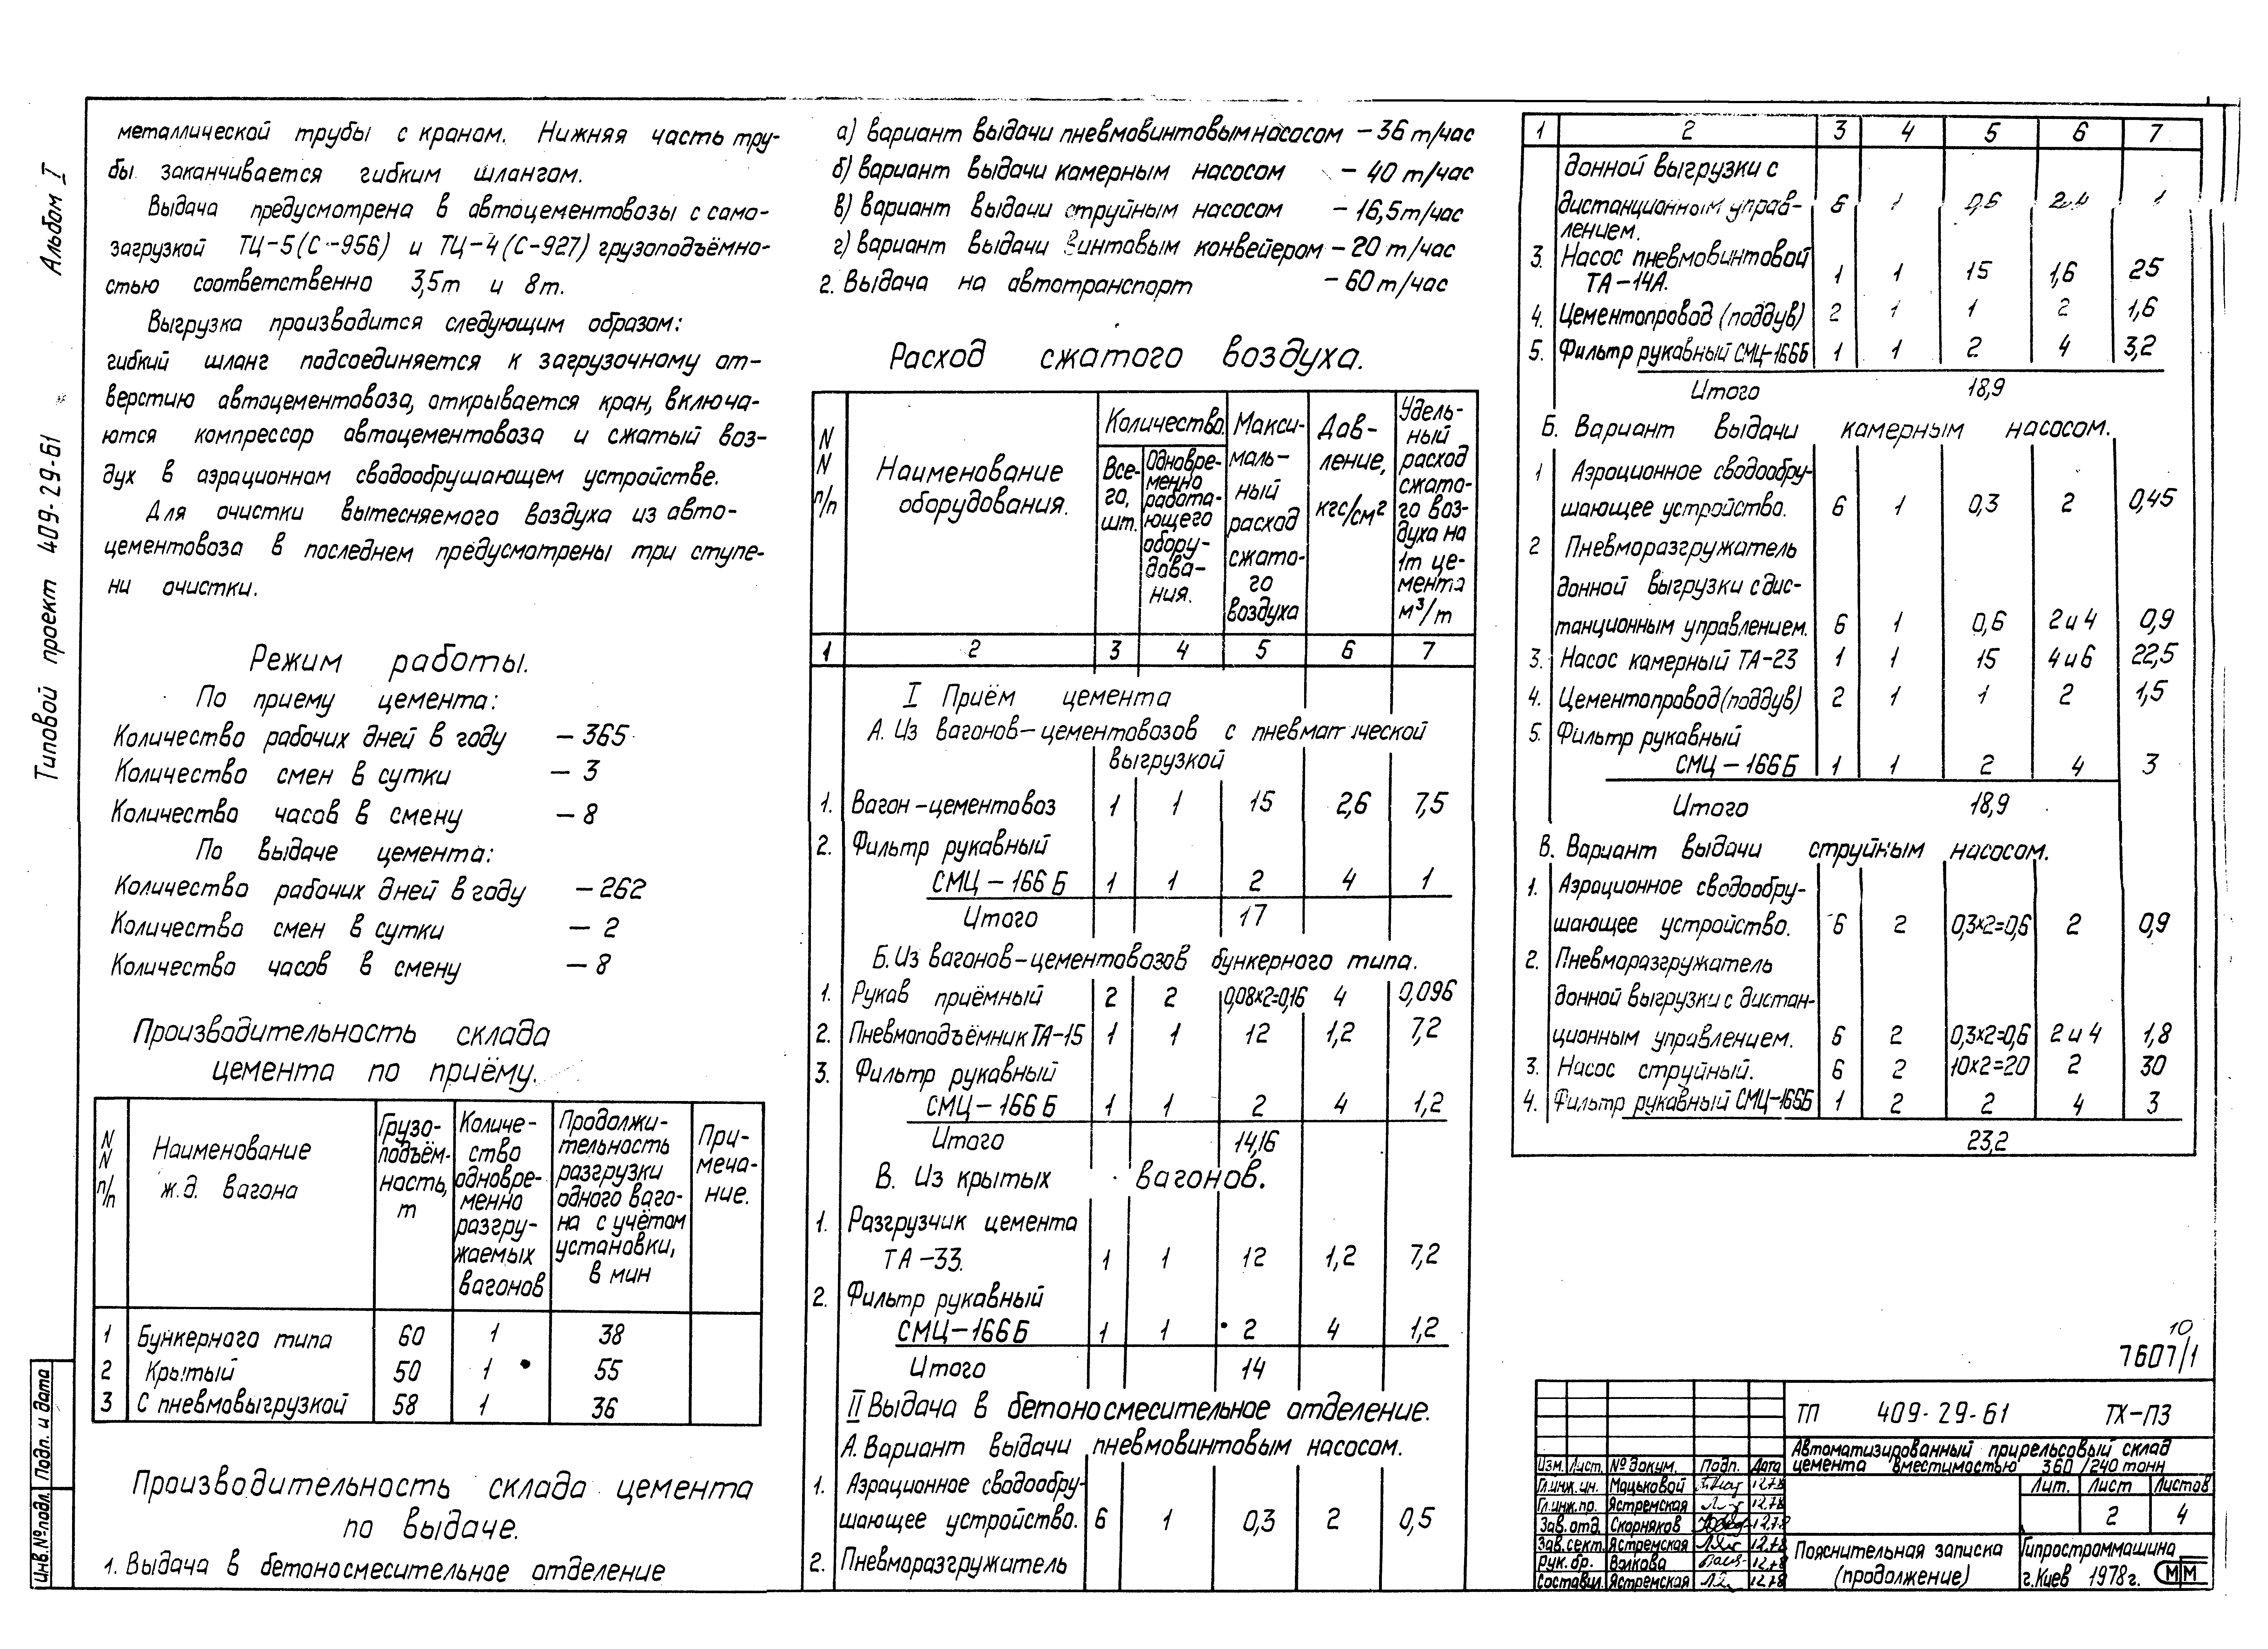 Альбом I
Типовой проект 409-29-61
Инв.№подл. Подп. и дата
металлической трубы с краном. Нижняя часть тру-
бы заканчивается гибким шлангом.
Выдача предусмотрена в автоцементовозы с само-
загрузкой ТЦ-5(С-956) и ТЦ-4(С-927) грузоподъёмно-
стью соответственно 3,5т и 8т.
Выгрузка производится следующим образом:
гибкий шланг подсоединяется к загрузочному от-
верстию автоцементовоза, открывается кран, включа-
ются компрессор автоцементовоза и сжатый воз-
дух в аэрационном сводообрушающем устройстве.
Для очистки вытесняемого воздуха из авто-
цементовоза в последнем предусмотрены три ступе-
ни очистки.
Режим работы.
По приему цемента:
Количество рабочих дней в году – 365
Количество смен в сутки – 3
Количество часов в смену – 8
По выдаче цемента:
Количество рабочих дней в году – 262
Количество смен в сутки – 2
Количество часов в смену – 8
Производительность склада
цемента по приёму.
N N п/п | Наименование ж.д. вагона | Грузо-подъём-ность, т | Количе-ство одновре-менно разгру-жаемых вагонов | Продолжи-тельность разгрузки одного ваго-на с учётом установки, в мин | При-меча-ние.
1 Бункерного типа 60 1 38
2 Крытый 50 1 55
3 С пневмовыгрузкой 58 1 36
Производительность склада цемента
по выдаче.
1. Выдача в бетоносмесительное отделение
а) вариант выдачи пневмовинтовым насосом – 36 т/час
б) вариант выдачи камерным насосом – 40 т/час
в) вариант выдачи струйным насосом – 16,5 т/час
г) вариант выдачи винтовым конвейером – 20 т/час
2. Выдача на автотранспорт – 60 т/час
Расход сжатого воздуха.
N N п/п | Наименование оборудования. | Количество. | Все-го, шт. | Одновре-менно работа-ющего обору-дова-ния. | Макси-маль-ный расход сжато-го воздуха | Дав-ление, кгс/см² | Удель-ный расход сжато-го воз-духа на 1т це-мента м³/т
1 2 3 4 5 6 7
I Приём цемента
А. Из вагонов-цементовозов с пневматической
выгрузкой
1. Вагон-цементовоз 1 1 15 2,6 7,5
2. Фильтр рукавный
СМЦ-166Б 1 1 2 4 1
Итого 17
Б. Из вагонов-цементовозов бункерного типа.
1. Рукав приёмный 2 2 0,08×2=0,16 4 0,096
2. Пневмоподъёмник ТА-15 1 1 12 1,2 7,2
3. Фильтр рукавный
СМЦ-166Б 1 1 2 4 1,2
Итого 14,16
В. Из крытых вагонов.
1. Разгрузчик цемента
ТА-33. 1 1 12 1,2 7,2
2. Фильтр рукавный
СМЦ-166Б 1 1 2 4 1,2
Итого 14
II Выдача в бетоносмесительное отделение.
А. Вариант выдачи пневмовинтовым насосом.
1. Аэрационное сводообру-
шающее устройство. 6 1 0,3 2 0,5
2. Пневморазгружитель
1 2 3 4 5 6 7
донной выгрузки с
дистанционным управ- 6 1 0,6 2и4 1
лением.
3. Насос пневмовинтовой
ТА-14А. 1 1 15 1,6 25
4. Цементопровод (поддув) 2 1 1 2 1,6
5. Фильтр рукавный СМЦ-166Б 1 1 2 4 3,2
Итого 18,9
Б. Вариант выдачи камерным насосом.
1 Аэрационное сводообру-
шающее устройство. 6 1 0,3 2 0,45
2 Пневморазгружатель
донной выгрузки с дис-
танционным управлением. 6 1 0,6 2и4 0,9
3. Насос камерный ТА-23 1 1 15 4и6 22,5
4. Цементопровод (поддув) 2 1 1 2 1,5
5. Фильтр рукавный
СМЦ-166Б 1 1 2 4 3
Итого 18,9
В. Вариант выдачи струйным насосом.
1. Аэрационное сводообру-
шающее устройство. 6 2 0,3×2=0,6 2 0,9
2. Пневморазгружатель
донной выгрузки с дистан-
ционным управлением. 6 2 0,3×2=0,6 2и4 1,8
3. Насос струйный. 6 2 10×2=20 2 30
4. Фильтр рукавный СМЦ-166Б 1 2 2 4 3
23,2
10
7607/1
ТП 409-29-61 ТХ-ПЗ
Автоматизированный прирельсовый склад
цемента вместимостью 360/240 тонн
Изм. Лист. № докум. Подп. Дата
Гл.инж.ин. Мацьковой 12.78
Гл.инж.пр. Ястремская 12.78
Зав.отд. Скорняков 12.78
Зав.сект. Ястремская 12.78
Рук.бр. Волкова 12.78
Составил Ястремская 12.78
Лит. Лист Листов
2 4
Пояснительная записка
(продолжение)
Гипростроммашина
г.Киев 1978г.
СММ